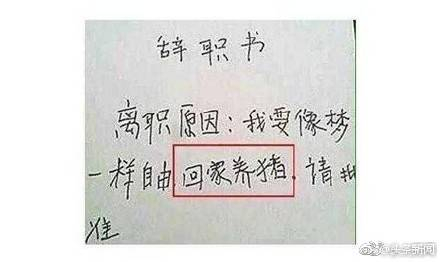 辞职书
离职原因：我要像梦
一样自由，回家养猪。请批
准
@头条新闻